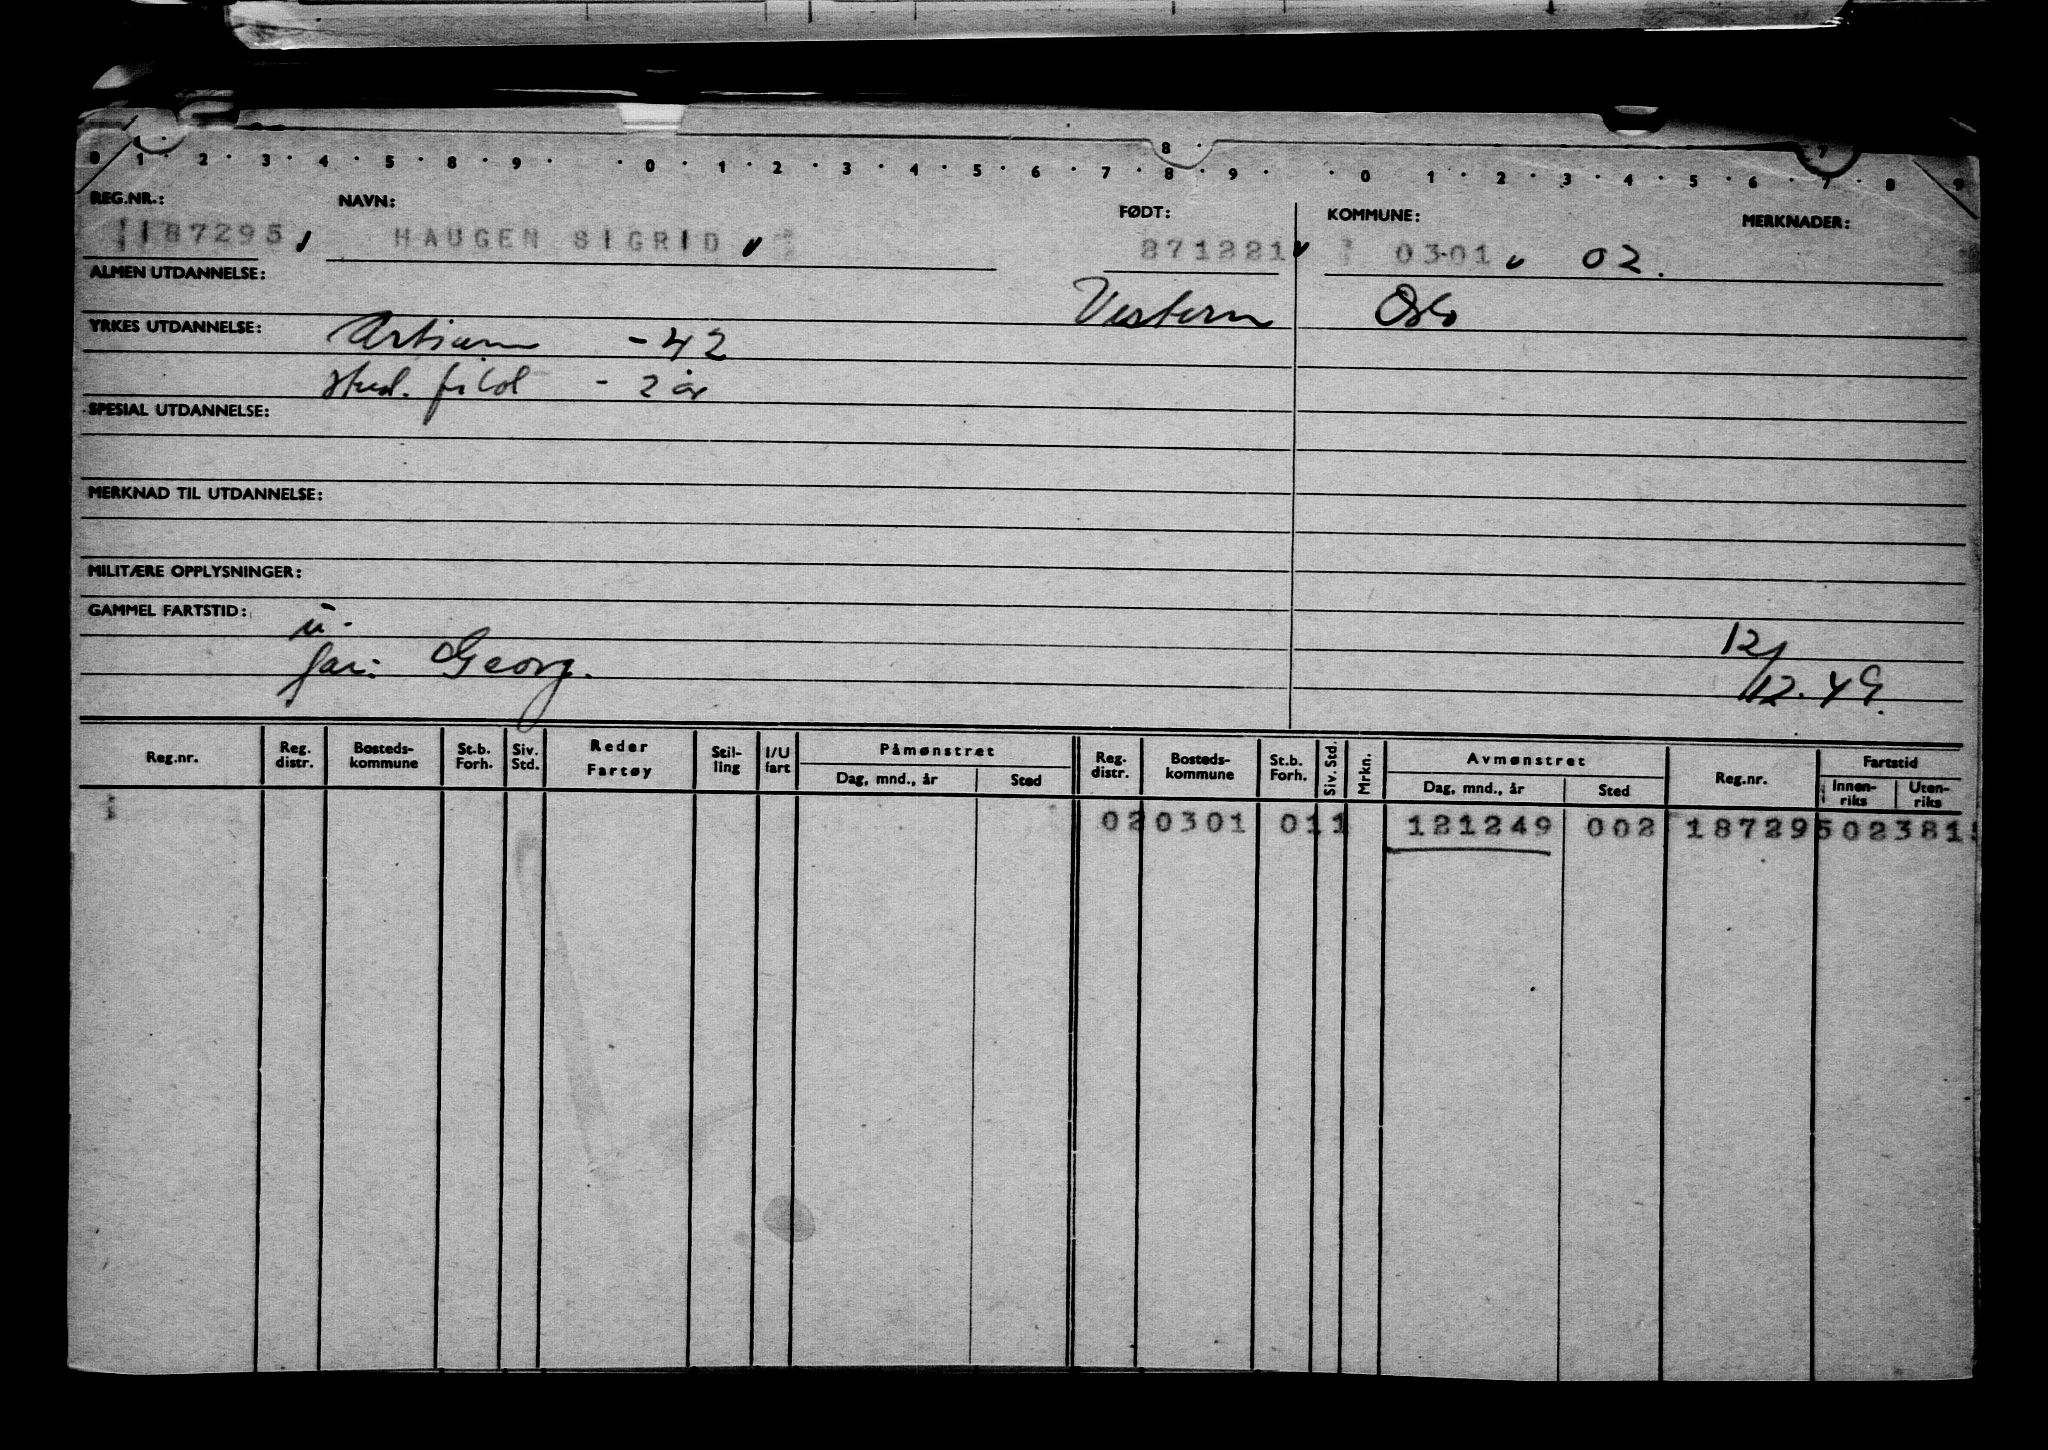 0 1 · 2 · 3 · 4 · 5 · 8 · 9 · · 0 · 1 · 2 · 3 · 4 · 5 · 6 · 7 · 8 · 9 · · 0 · 1 · 2 · 3 · 4 · 5 · 6 · 7 · 8 · 9
8 7
REG.NR.: NAVN: FØDT: KOMMUNE: MERKNADER:
187295 HAUGEN SIGRID 271221 0301 02.
ALMEN UTDANNELSE:
Oslo
YRKES UTDANNELSE: Artium - 42
stud. filol - 2 år
SPESIAL UTDANNELSE:
MERKNAD TIL UTDANNELSE:
MILITÆRE OPPLYSNINGER:
GAMMEL FARTSTID:
far: Georg.
12/12.49.
Reg.nr. Reg. distr. Bosteds-kommune St.b. Forh. Siv. Std. Reder Fartøy Stil-ling I/U fart Påmønstret Dag, mnd., år Sted Reg. distr. Bosteds-kommune St.b. Forh. Siv. Std. Mrkn. Avmønstret Dag, mnd., år Sted Reg.nr. Fartstid Innen-riks Uten-riks
02 0301 011 121249 002 187295023815